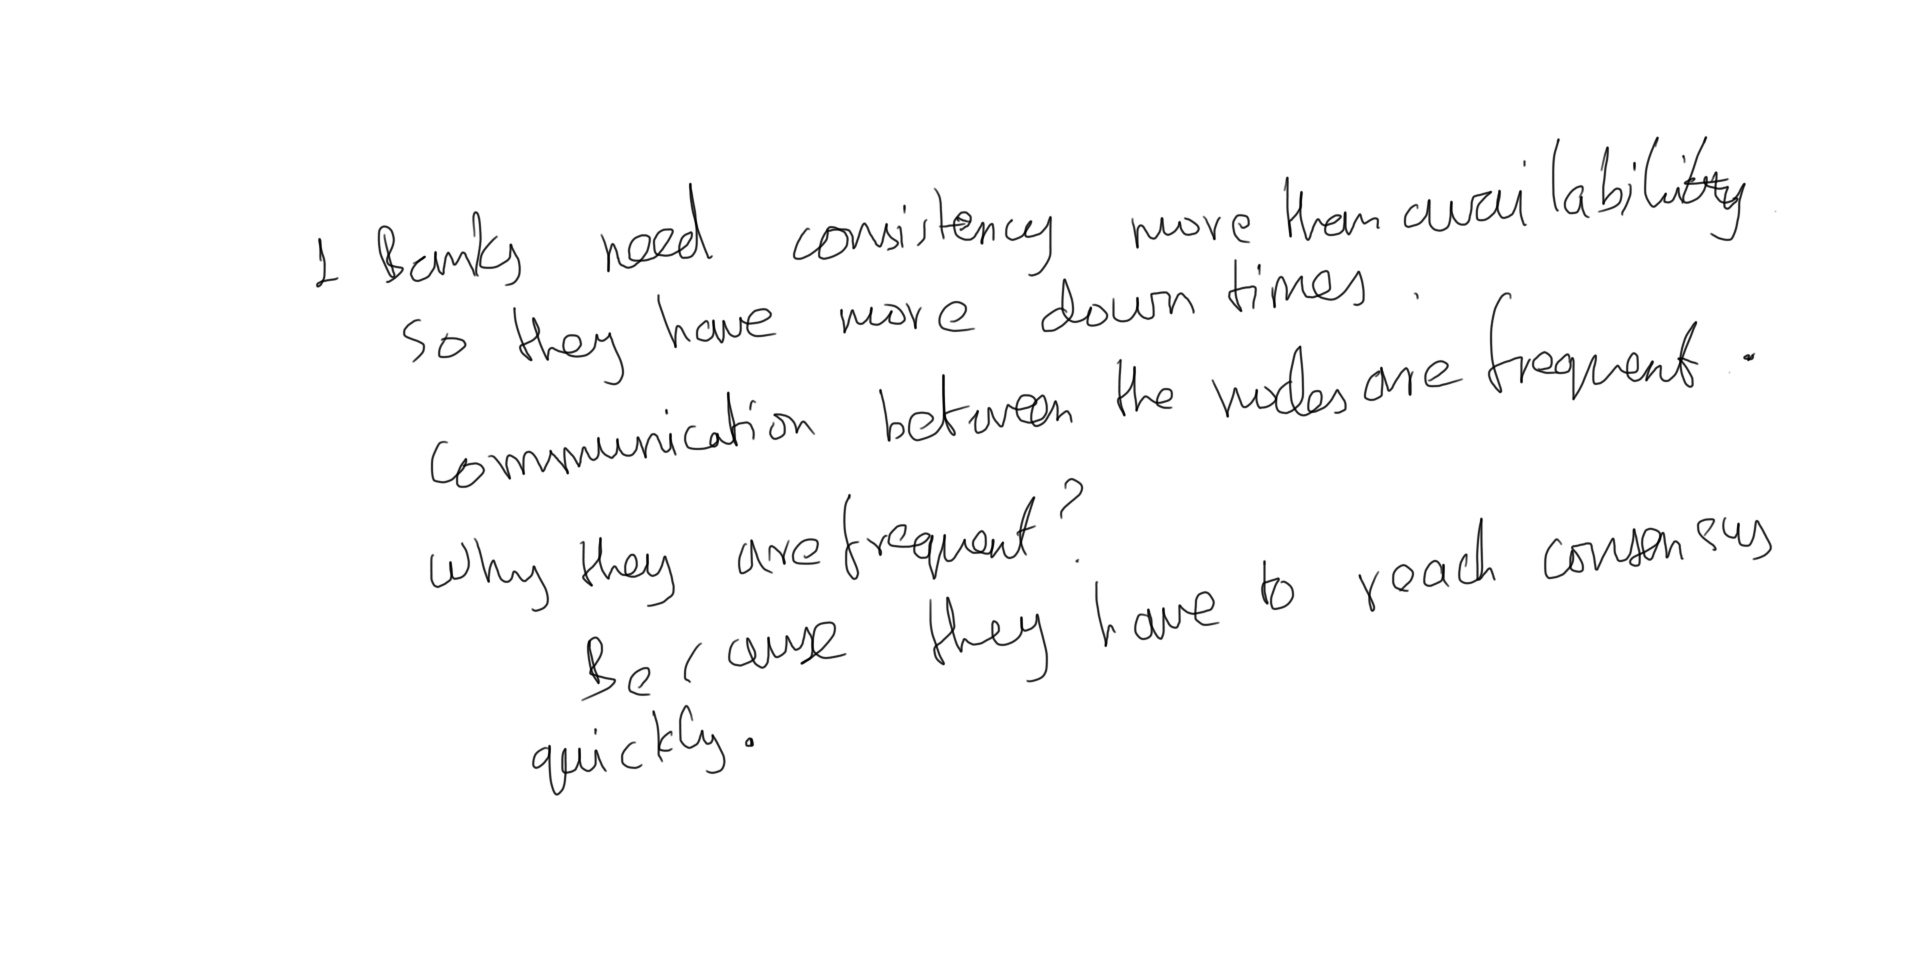 1 Banks need consistency more than availability
so they have more down times.
Communication between the nodes are frequent.
Why they are frequent?
Because they have to reach consensus
quickly.